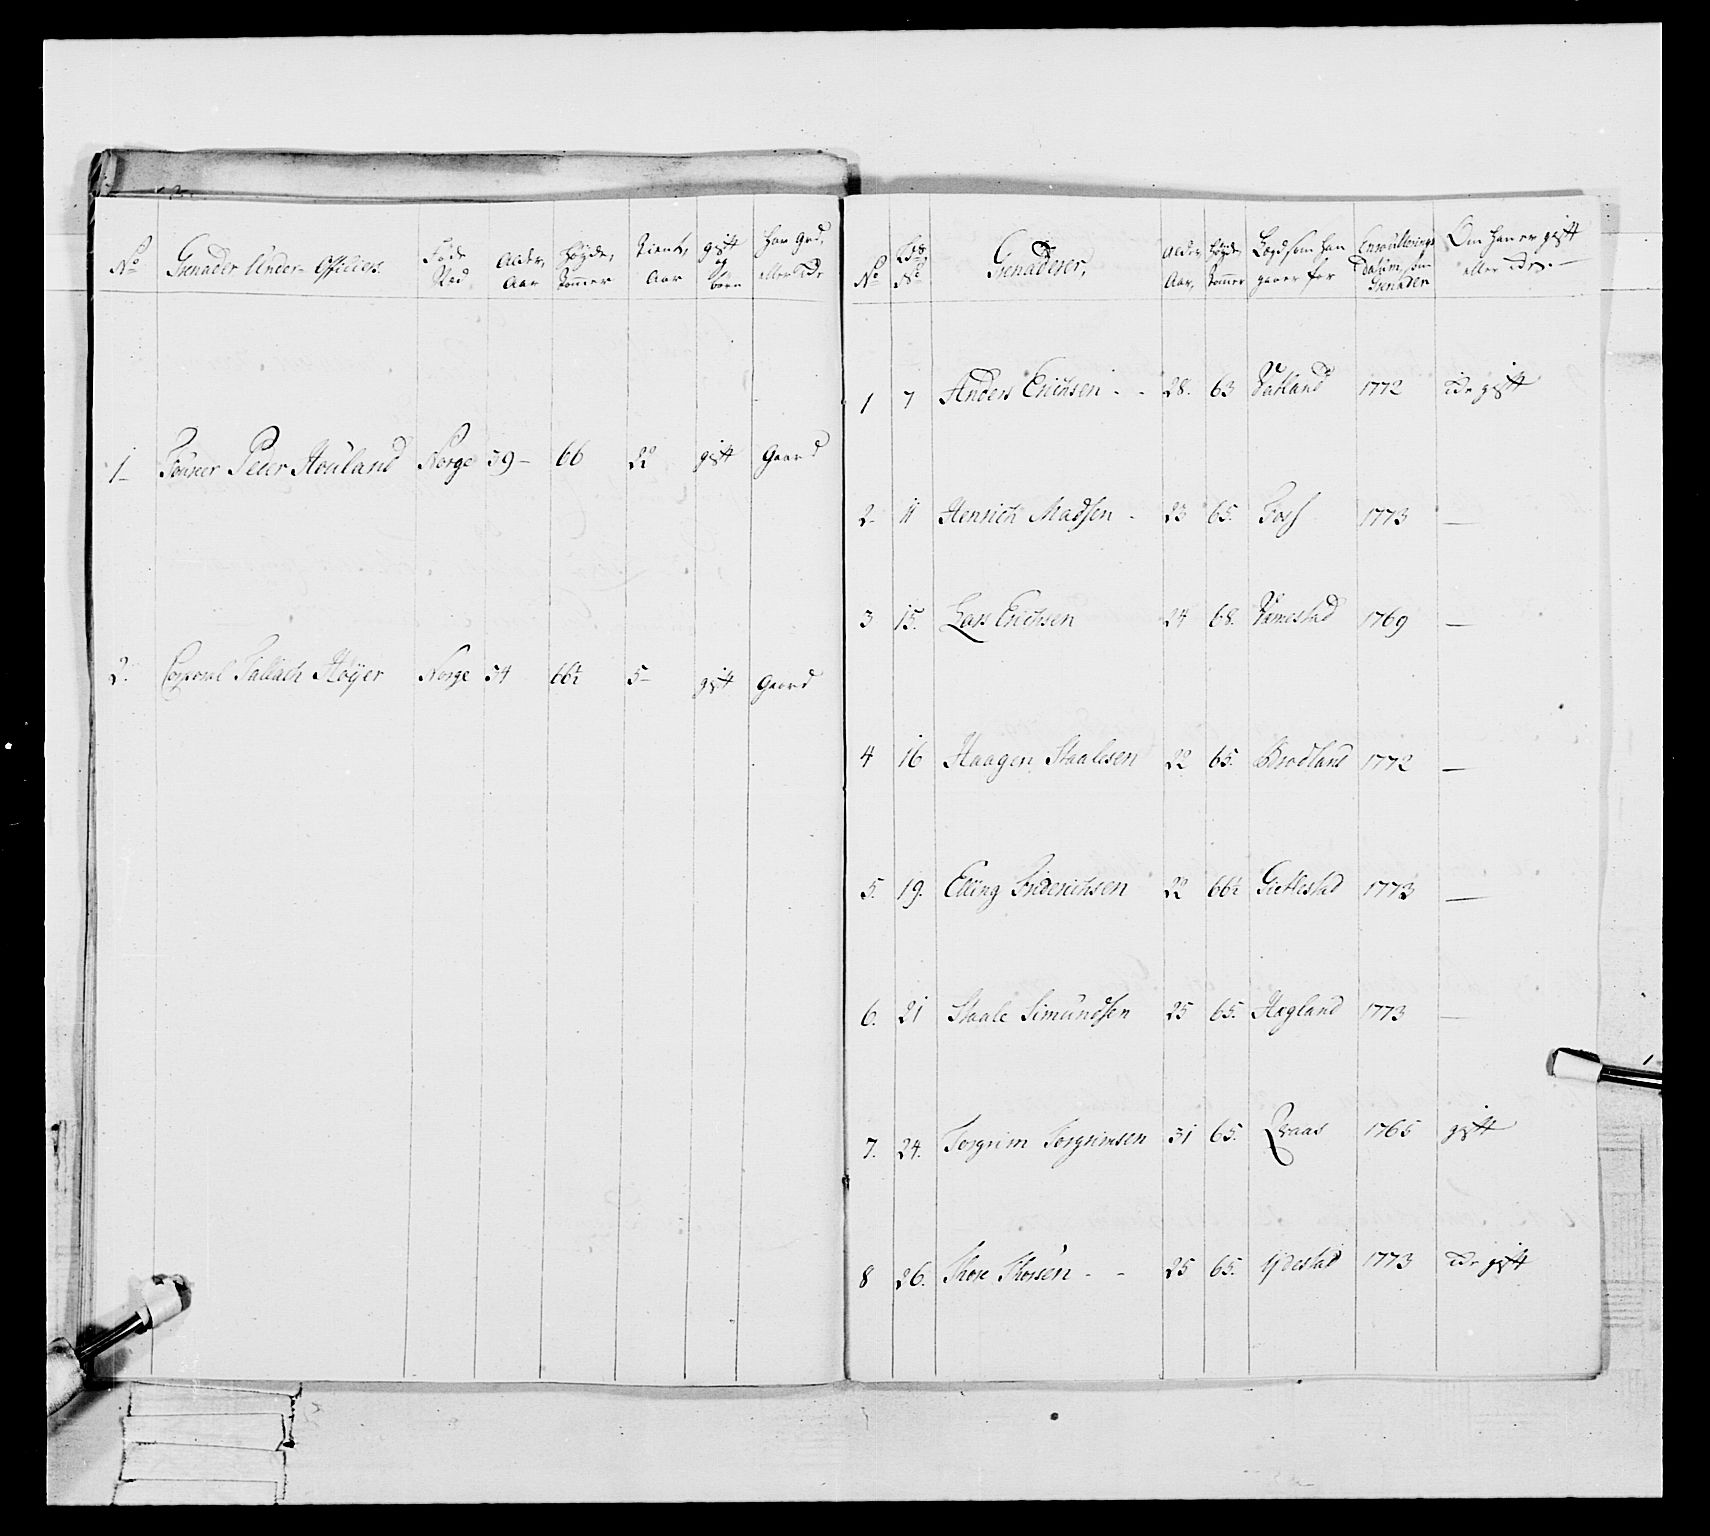 No Grenader Under-Officiers. Føde Stæd Alder, Aar Høyde, Tommer Tienst, Aar gift og børn har Grd, eller Ede
1 Fourer Peter Houland Norge 39 66 22 gift Gaard
2. Corporal Tallach Høyer Norge 54 66½ 5 gift Gaard
No Lgs No Grenaderer, Alder, Aar, Høyde, Tommer Lægd som han giør for Enroullerings Datum, som Grenader Om han er gift eller Ede.
1 7 Anders Erichsen 28. 63 Vatland 1772 Ede gift
2. 11 Henrich Madsen 23 65. Foss 1773 —
3 15. Lars Erichsen 24 68. Vamestad 1769 —
4 16 Haagen Staalesen 22 65. Brodland 1772 —
5. 19. Elling Friderichsen 22 66½ Gietlestad 1773 —
6. 21 Staale Simundsen 25 65. Hægland 1773 —
7. 24. Torgrim Torgrimsen 31 65. Qvaas 1765 gift
8 26. Thore Thorsen 25 65. Ydestad 1773 Ede gift